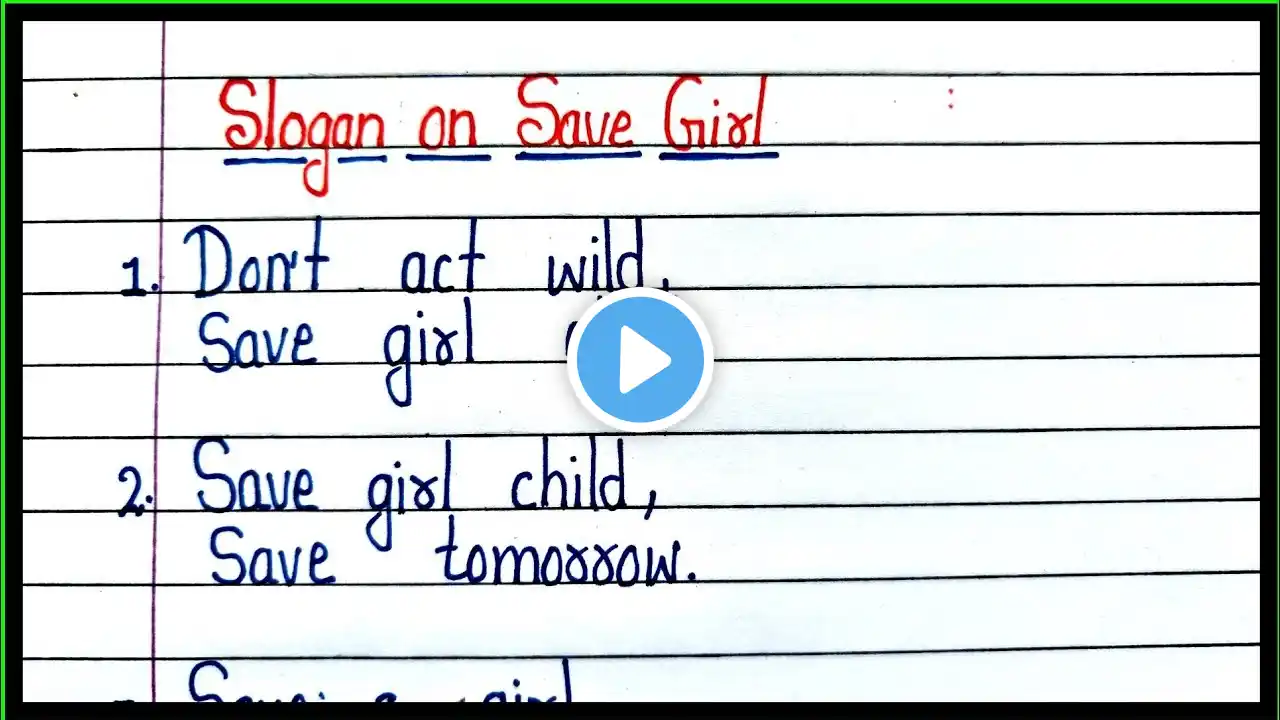 Slogan on Save Girl
1. Don't act wild,
Save girl
2. Save girl child,
Save tomorrow.
Save a girl